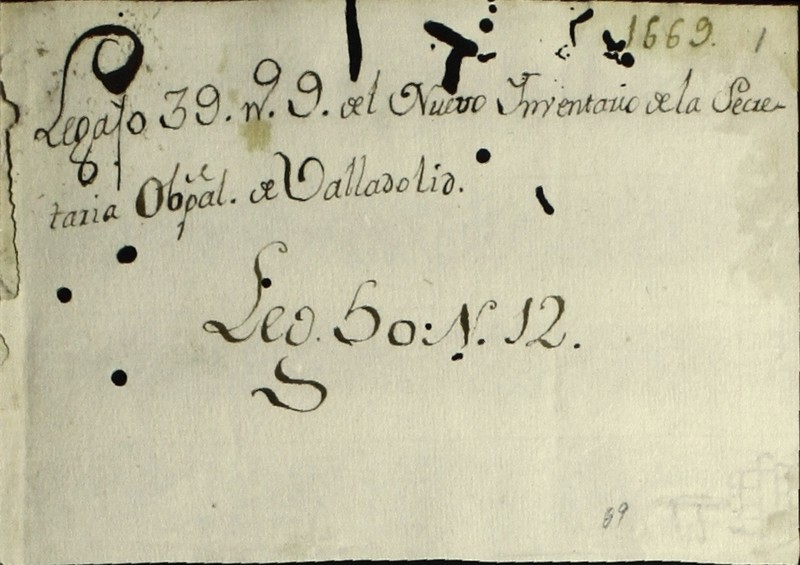 1669. 1
Legajo 39. n. 9. del Nuevo Inventario de la Secre-
taria Obpal. de Valladolid.
Leg. 50: N. 12.
39